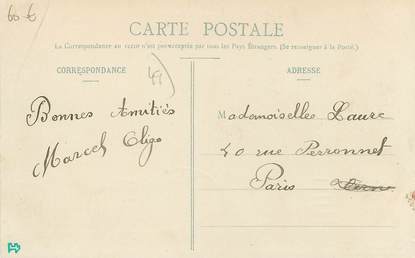 60-6
CARTE POSTALE
La Correspondance au recto n'est pas acceptée par tous les Pays Étrangers. (Se renseigner à la Poste.)
CORRESPONDANCE
ADRESSE
49
Bonnes Amitiés
Marcel
Mademoiselle Laure
40 rue Perronnet
Paris